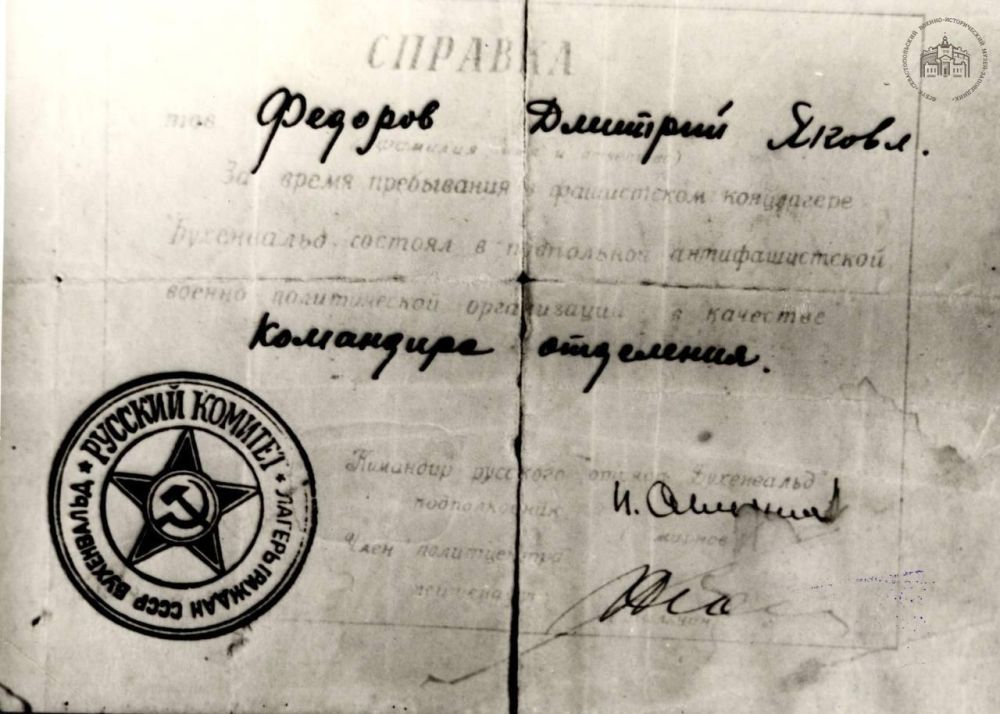 СПРАВКА
тов Федоров Дмитрий Яковл.
(фамилия имя и отчество)
За время пребывания в фашистском концлагере
Бухенвальд состоял в подпольной антифашистской
военно политической организации в качестве
Командира отделения.
РУССКИЙ КОМИТЕТ * ЛАГЕРЬ ГРАЖДАН СССР БУХЕНВАЛЬД *
Командир русского Бухенвальд"
подполковник
Член политцентра
СЕВАСТОПОЛЬСКИЙ ВОЕННО-ИСТОРИЧЕСКИЙ МУЗЕЙ-ЗАПОВЕДНИК